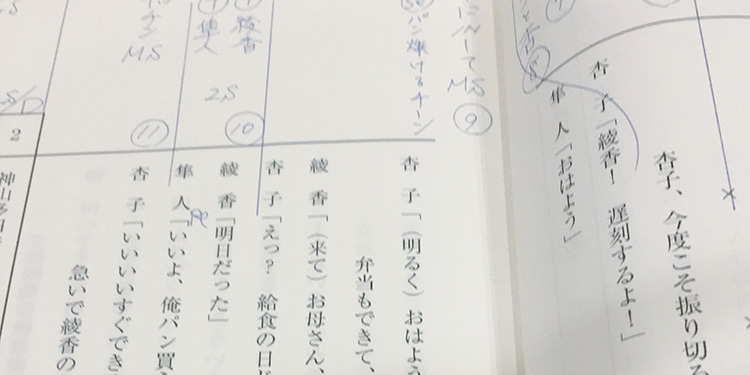 杏子、今度こそ振り切る
杏　子「綾香！　遅刻するよ！」
隼　人「おはよう」
MS ⑨
パン焼けるチーン
杏　子「（明るく）おはよう
弁当もできて、
綾　香「（来て）お母さん、
杏　子「えっ？　給食の日
⑩
綾香
隼人
2S
綾　香「明日だった」
隼　人「いいよ、俺パン買
⑪
MS
杏　子「いいいいすぐでき
急いで綾香の
S/D
2